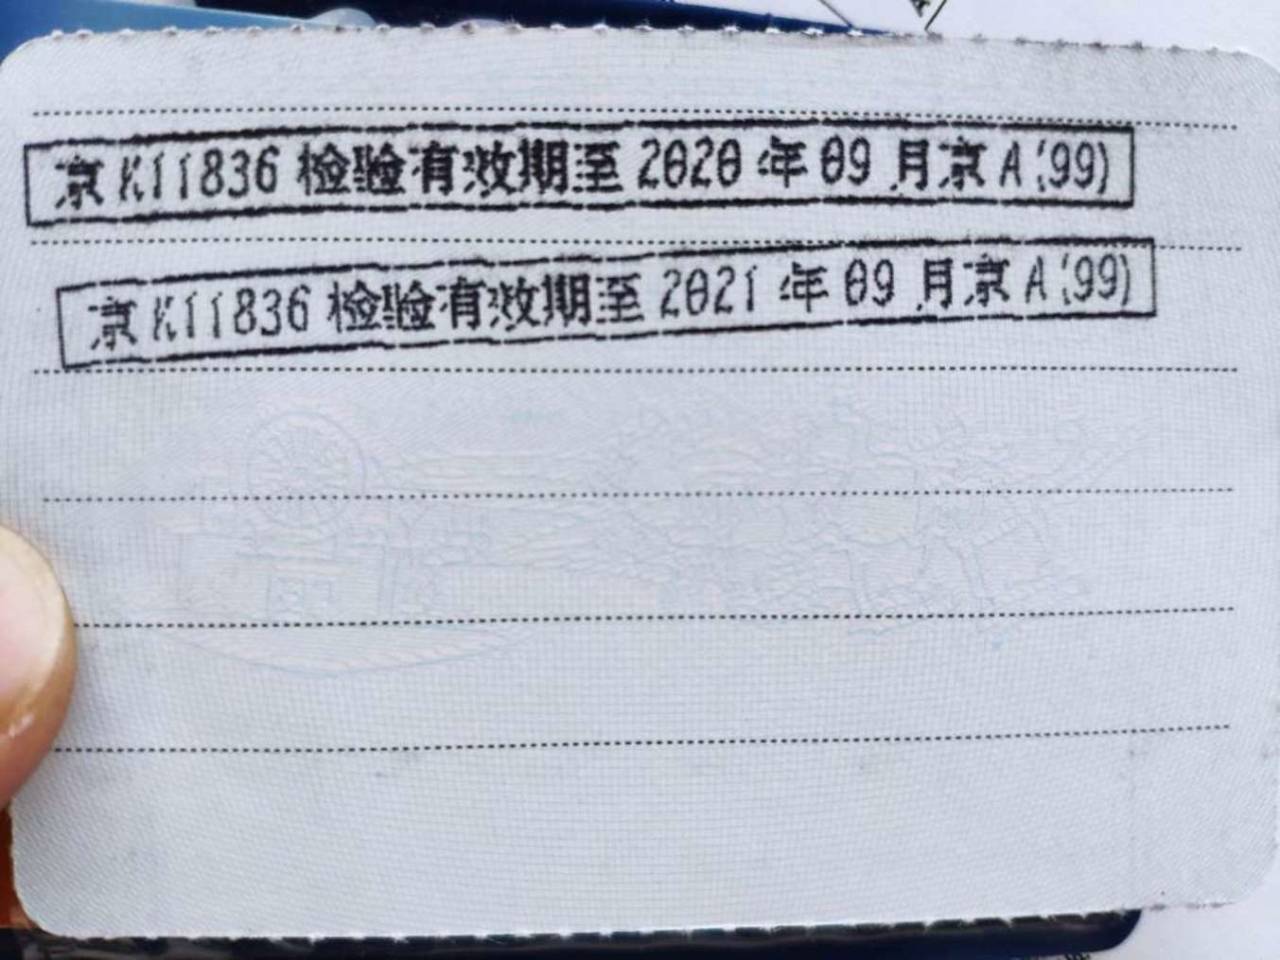 京K11836 检验有效期至 2020 年 09 月京A(99)
京K11836 检验有效期至 2021 年 09 月京A(99)